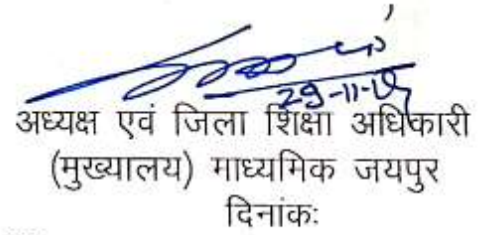 29-11-19
अध्यक्ष एवं जिला शिक्षा अधिकारी
(मुख्यालय) माध्यमिक जयपुर
दिनांक: